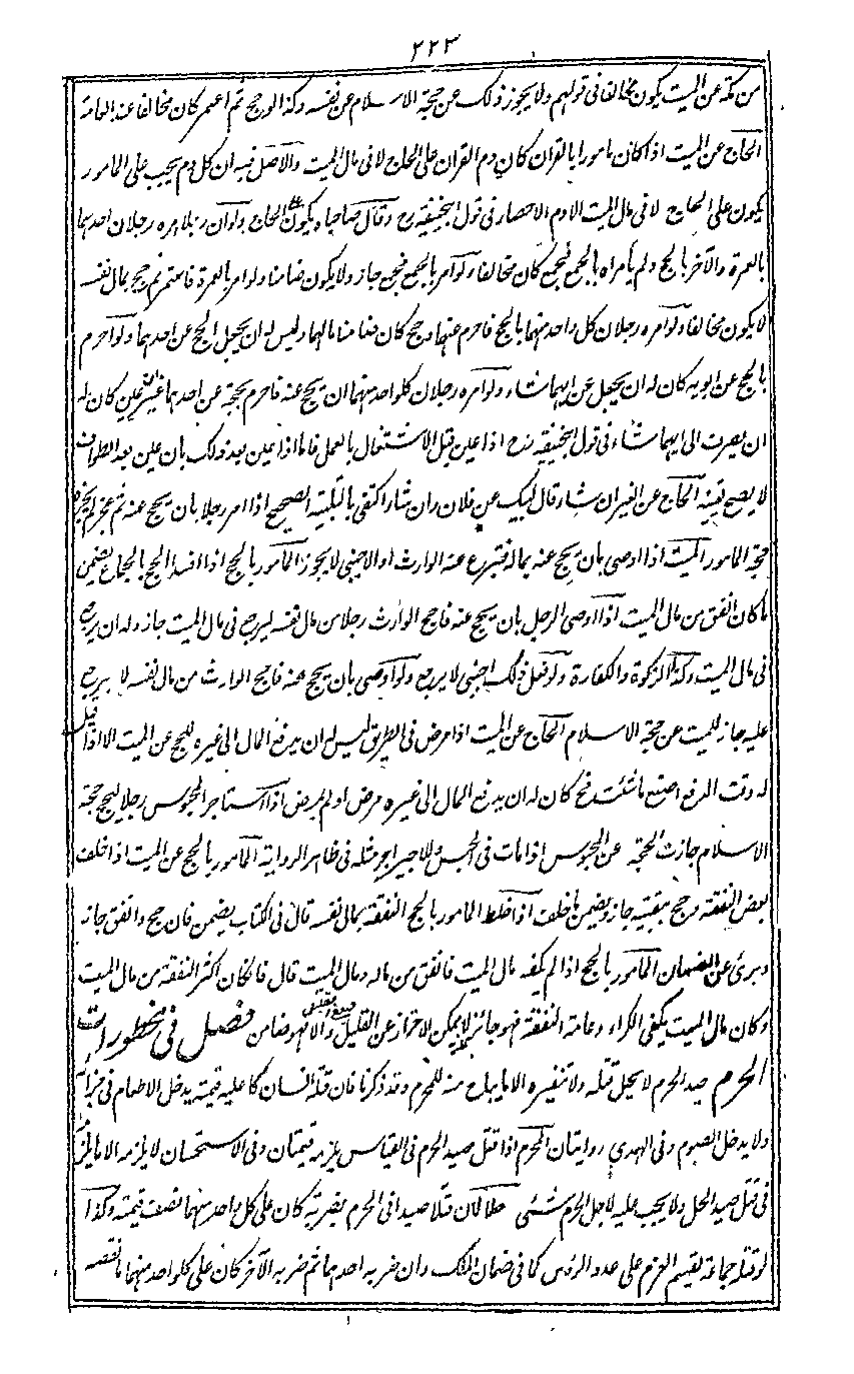 ٢٢٣
من مكة عن الميت يكون مخالفا فى قولهم ولا يجوز ذلك عن حجة الاسلام عن نفسه وكذا لو حج ثم اعتمر كان مخالفا عند العامة
الحاج عن الميت اذا كان مامورا بالقران كان دم القران على الحاج لا فى مال الميت والاصل فيه ان كل دم يجب على المامور
يكون على الحاج لا فى مال الميت الا دم الاحصار فى قول ابيحنيفة رح وقال صاحبا ه يكون على الحاج ولو ان رجلا امره رجلان احدهما
بالعمرة والآخر بالحج ولم يأمراه بالجمع فجمع كان مخالفا ولو امر بالجمع فجمع جاز ولا يكون ضامنا ولو امر بالعمرة فاعتمر ثم حج بمال نفسه
لا يكون مخالفا ولو امره رجلان كل واحد منهما بالحج فاحرم عنهما وحج كان ضامنا مالهما وليس له ان يجعل الحج عن احدهما ولو احرم
بالحج عن ابويه كان له ان يجعل عن ايهما شاء ولو امره رجلان كلواحد منهما ان يحج عنه فاحرم بحجة عن احدهما غير عين كان له
ان يصرف الى ايهما شاء فى قول ابيحنيفة رح اذا عين قبل الاشتغال بالعمل فاما اذا عين بعد ذلك بان عين بعد الطواف
لا يصح تعيينه الحاج عن الغير ان شاء قال لبيك عن فلان وان شاء اكتفى بالتلبية الصحيح اذا امر رجلا بان يحج عنه ثم عجز لم يجزه
حجة المامور الميت اذا اوصى بان يحج عنه بماله فتبرع عنه الوارث او الاجنبى لا يجوز المامور بالحج اذا افسد الحج بالجماع يضمن
ما كان انفق من مال الميت اذا اوصى الرجل بان يحج عنه فاحج الوارث رجلا من مال نفسه ليرجع فى مال الميت جاز وله ان يرجع
فى مال الميت وكذا الزكوة والكفارة ولو فعل ذلك اجنبى لا يرجع ولو اوصى بان يحج عنه فاحج الوارث من مال نفسه لا يرجع
عليه جاز للميت عن حجة الاسلام الحاج عن الميت اذا مرض فى الطريق ليس له ان يدفع المال الى غيره ليحج عن الميت الا اذا قيل
له وقت الدفع اصنع ما شئت فح كان له ان يدفع المال الى غيره مرض او لم يمرض اذا استاجر المحبوس رجلا ليحج حجة
الاسلام جازت الحجة عن المحبوس اذا مات فى الحبس وللاجير اجر مثله فى ظاهر الرواية المامور بالحج عن الميت اذا خلف
بعض النفقة وحج ببقيته جاز ويضمن ما خلف اذا خلط المامور بالحج النفقة بمال نفسه قال فى الكتاب يضمن فان حج وانفق جاز
وبرئ عن الضمان المامور بالحج اذا لم يكفه مال الميت فانفق من ماله ومال الميت قال فا لكان اكثر النفقة من مال الميت
وكان مال الميت يكفى الكراء وعامة النفقة فهو جائز لا يمكن الاحتراز عن القليل والا فهو ضامن فصل فى محظورات
الحرم صيد الحرم لا يحل قتله ولا تنفيره الا ما يباح منه للمحرم وقد ذكرنا فان قتله انسان كا عليه قيمته يدخل الاطعام فى جزائه
ولا يدخل الصوم وفى الهدي روايتان المحرم اذا قتل صيد الحرم فى القياس يلزمه قيمتان وفى الاستحسان لا يلزمه الا ما يلزمه
فى قتل صيد الحل ولا يجب عليه لاجل الحرم شئ حلالان قتلا صيدا فى الحرم بضربة كان على كل واحد منهما نصف قيمته وكذا
لو قتله جماعة يقسم الغرم على عدد الرؤس كما فى ضمان الملك وان ضربه احدهما ثم ضربه الآخر كان على كلواحد منهما ما نقصه